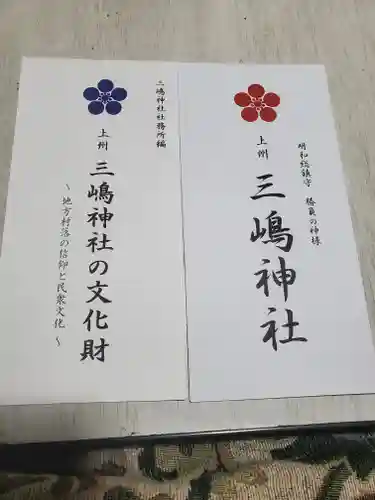 三嶋神社社務所編
上州 三嶋神社の文化財
~ 地方村落の信仰と民衆文化 ~
明和総鎮守 勝負の神様
上州 三嶋神社